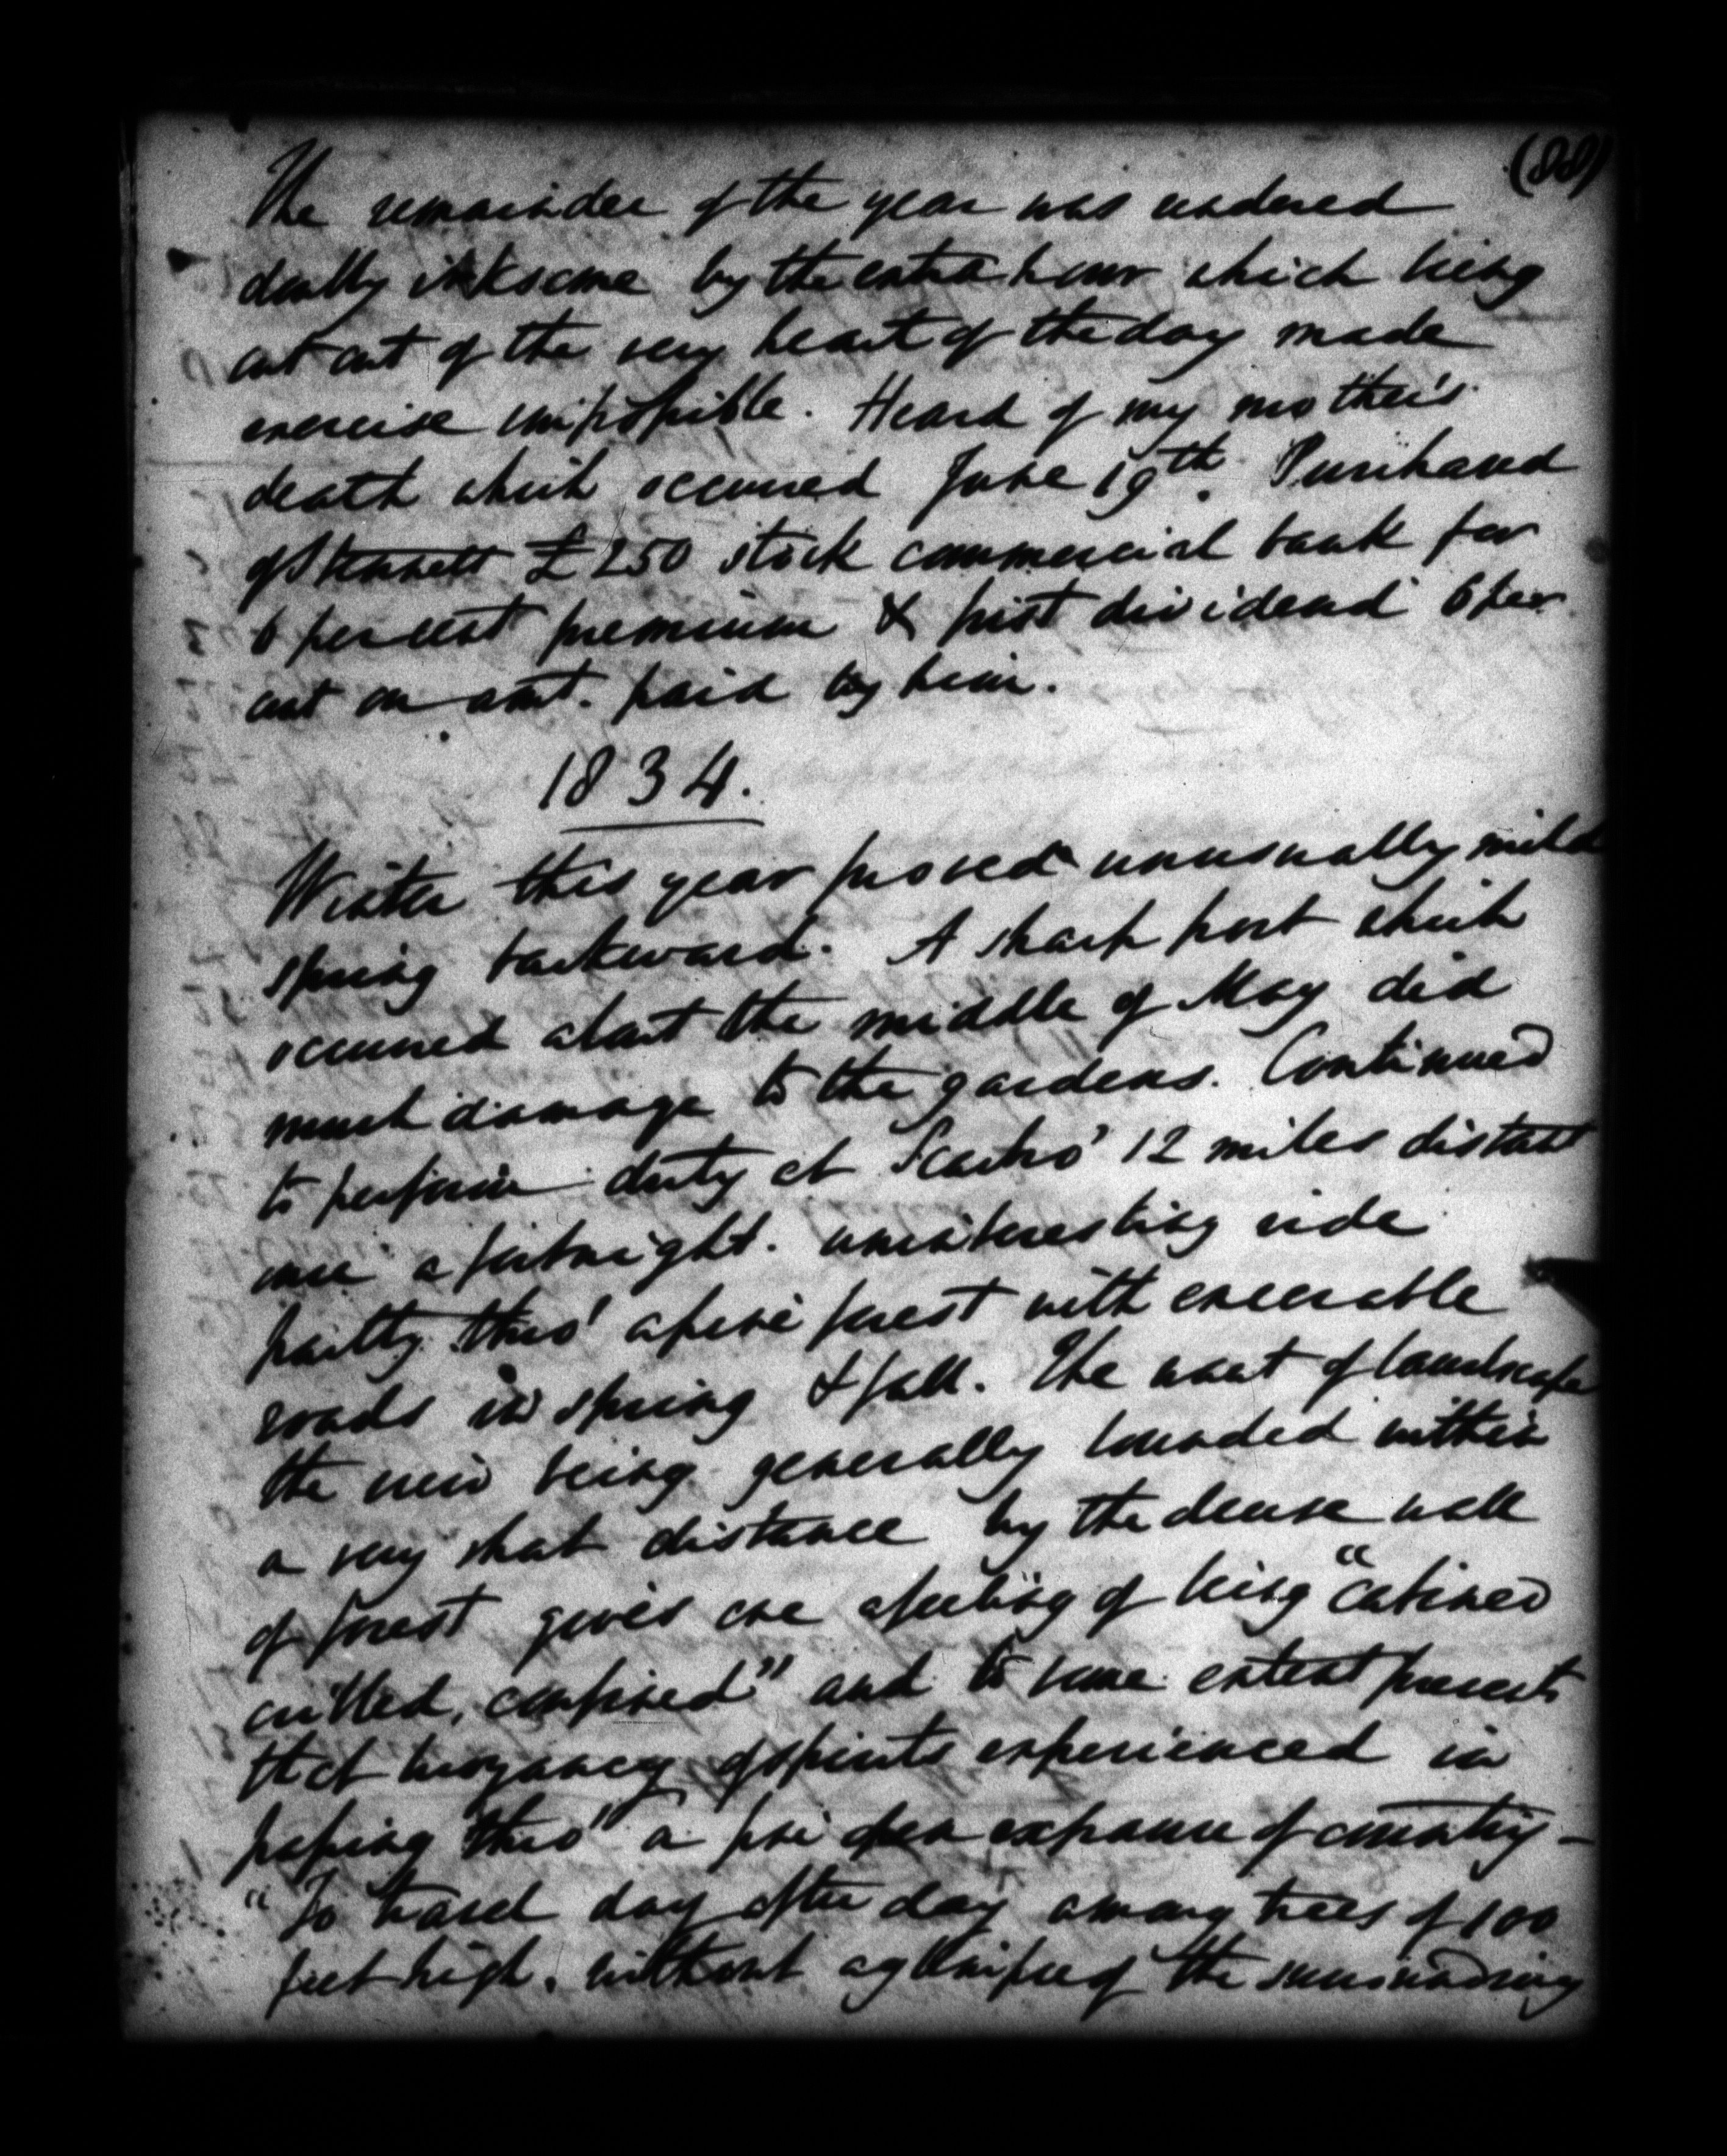 (88)
The remainder of the year was rendered
doubly irksome by the extra hour which being
cut out of the very heart of the day made
exercise impossible. Heard of my mother's
death which occurred June 19th. Purchased
of £250 stock commercial bank for
6 per cent premium & first dividend 6 per
cent on amt. paid by him.
1834.
Winter this year proved unusually mild
spring backward. A sharp frost which
occurred about the middle of May did
much damage to the gardens. Continued
to perform duty at Scarbro' 12 miles distant
once a fortnight. uninteresting ride
partly thro' a pine forest with execrable
roads in spring & fall. The want of landscape
the view being generally bounded within
a very short distance by the dense wall
of forest gives one a feeling of being "cabined
cribbed, confined" and to some extent prevents
that buoyancy of spirits experienced in
passing thro' a fine open expanse of country –
"To travel day after day among trees of 100
feet high, without a glimpse of the surrounding